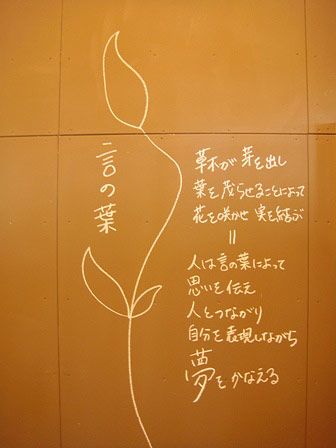 言の葉
草木が芽を出し
葉を茂らせることによって
花を咲かせ 実を結ぶ
=
人は言の葉によって
思いを伝え
人とつながり
自分を表現しながら
夢をかなえる